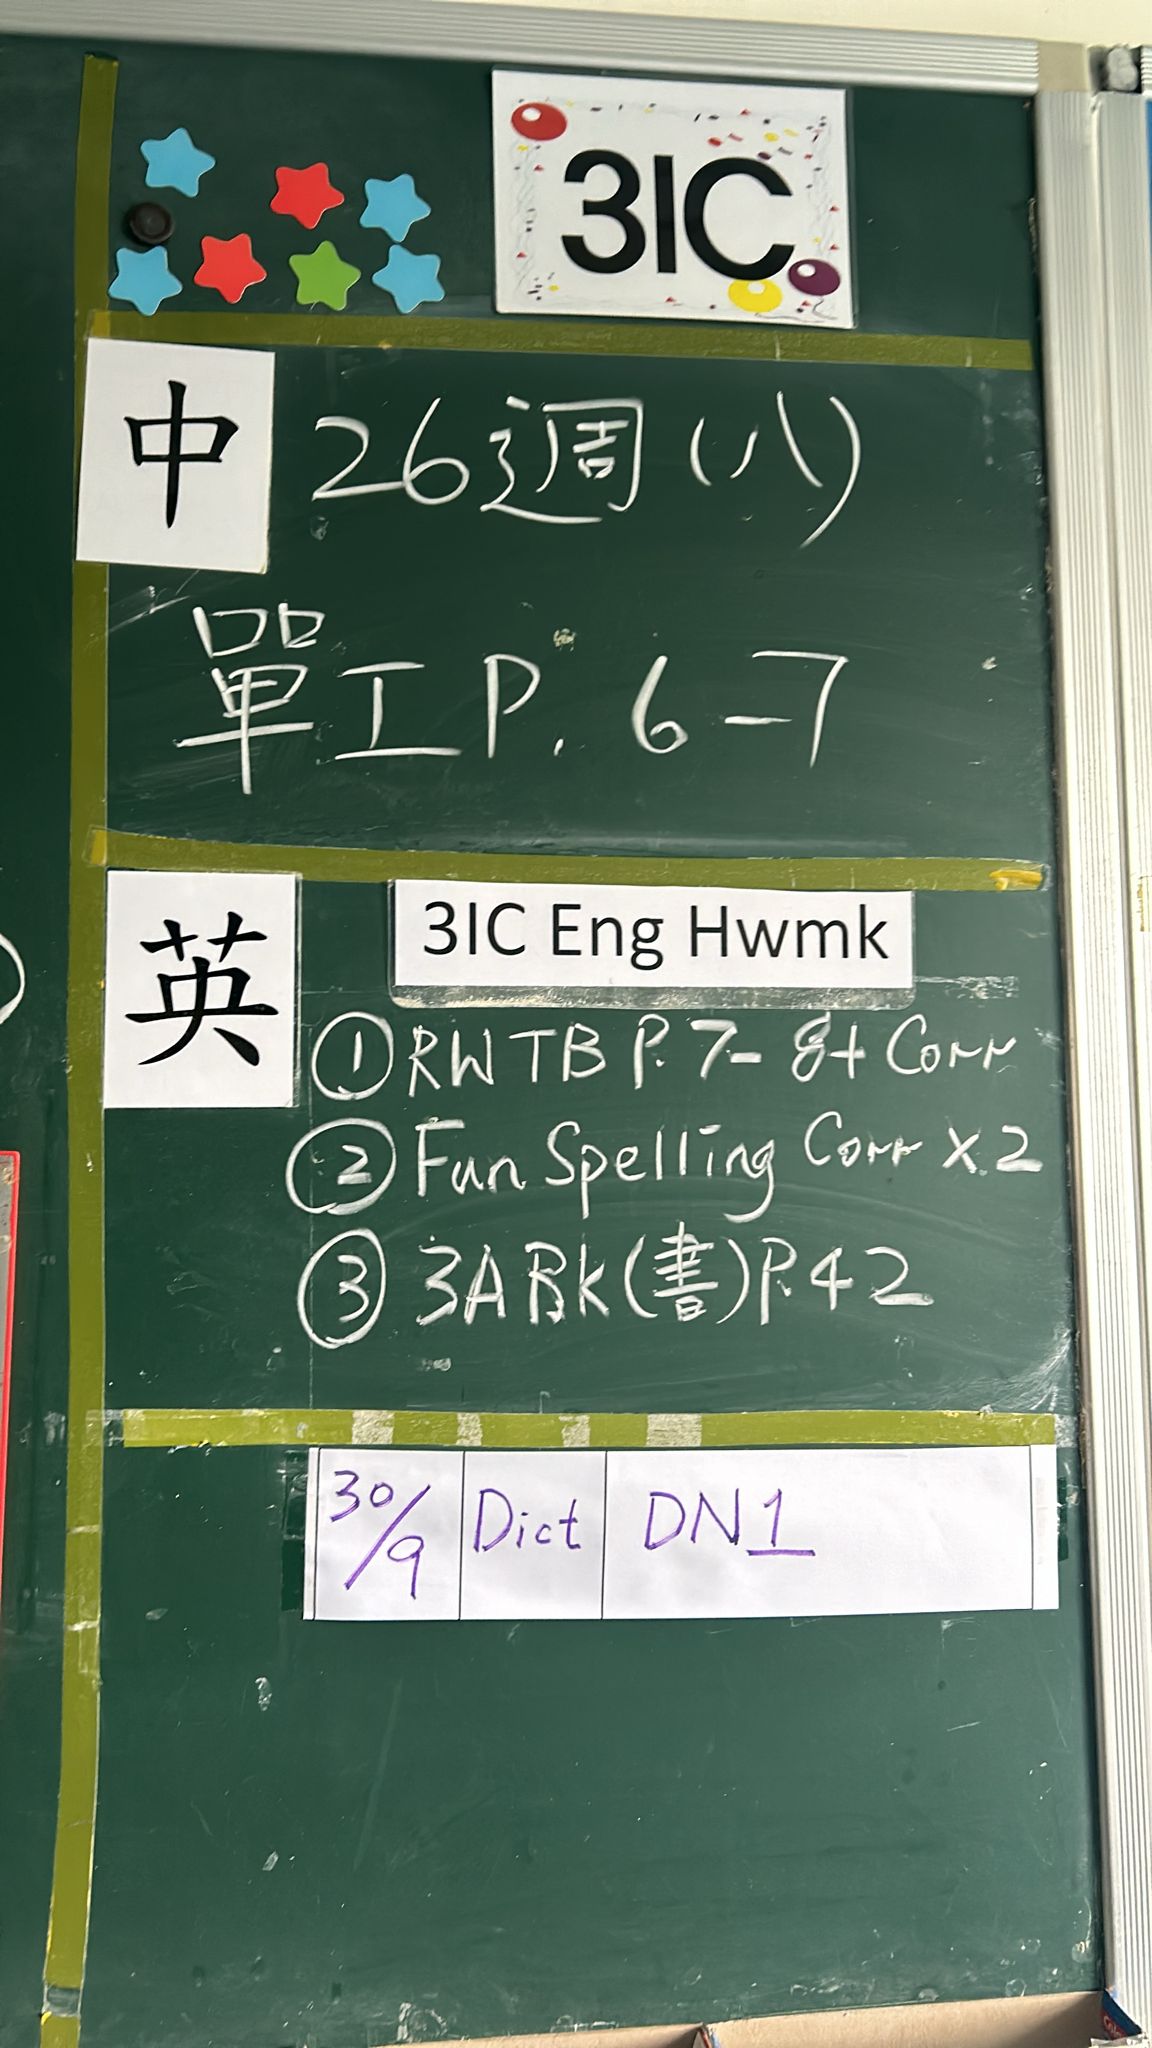 3IC
中 26週(八)
單工P. 6-7
英 3IC Eng Hwmk
① RWTB P. 7- 8+ Corr
② Fun Spelling Corr x 2
③ 3A BK(書)P.42
30/9 Dict DN1